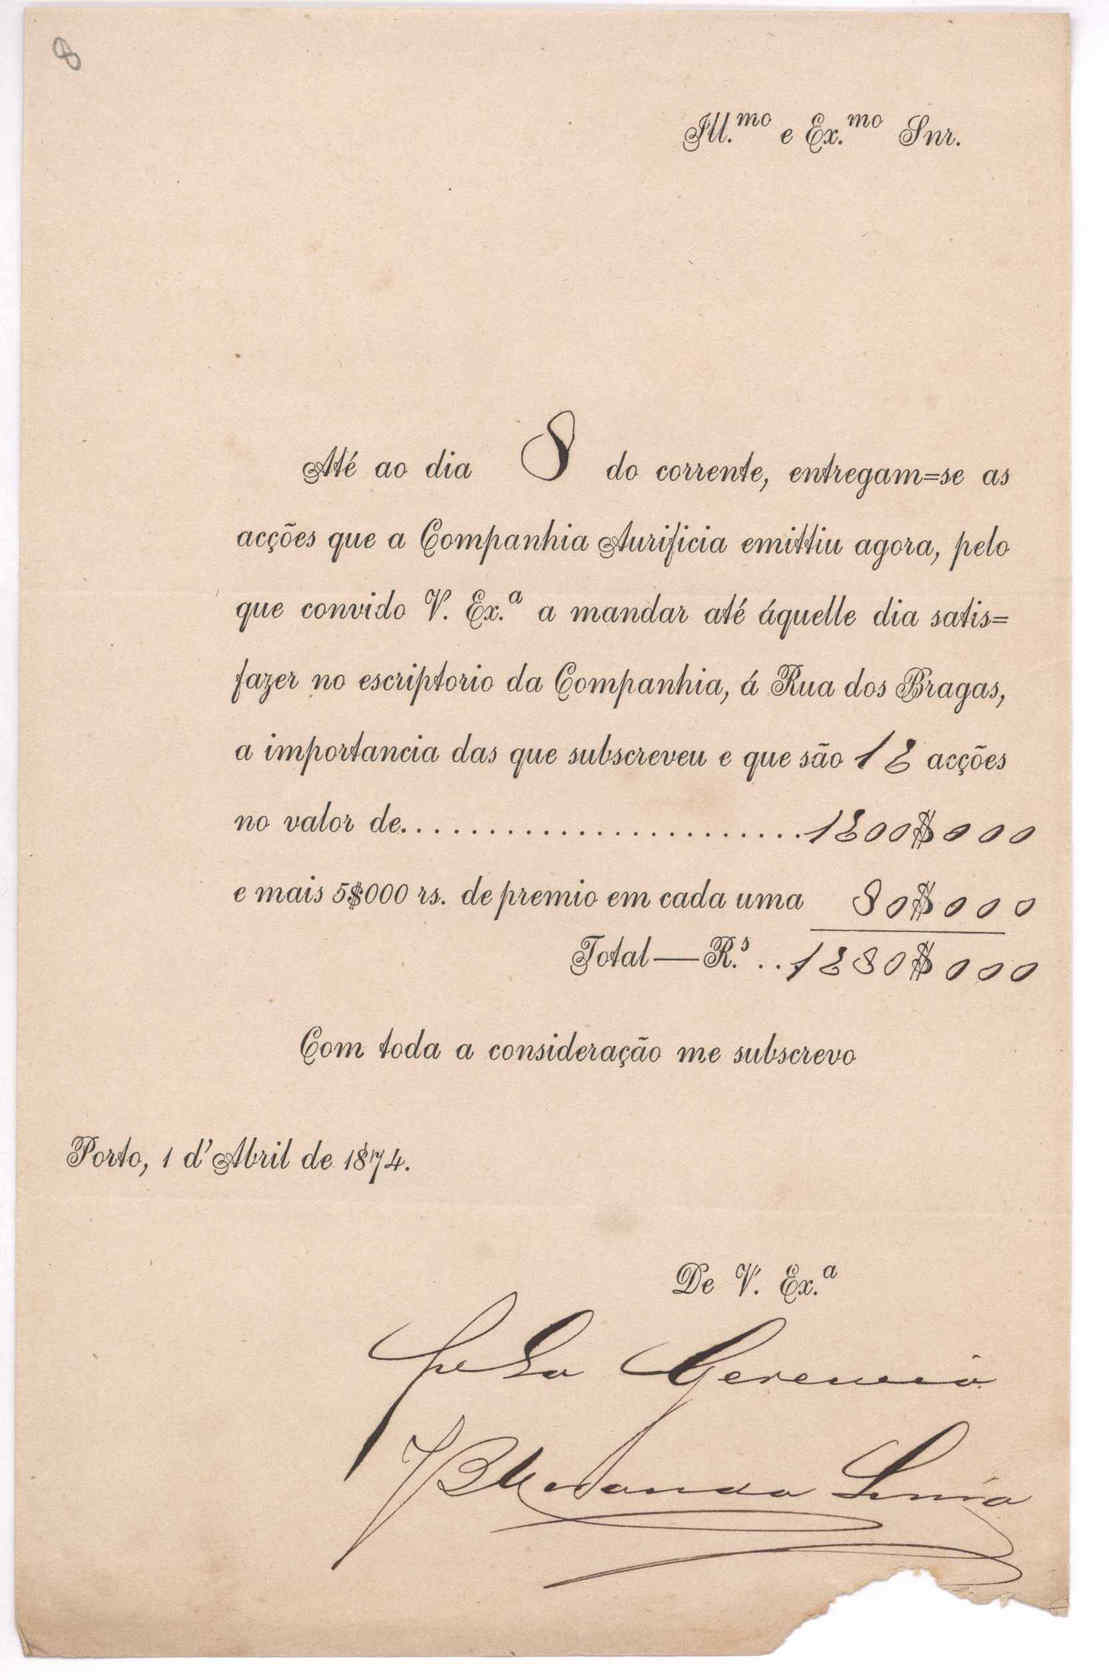 8
Ill.mo e Ex.mo Snr.
Até ao dia 8 do corrente, entregam=se as
acções que a Companhia Aurificia emittiu agora, pelo
que convido V. Ex.a a mandar até áquelle dia satis=
fazer no escriptorio da Companhia, á Rua dos Bragas,
a importancia das que subscreveu e que são 16 acções
no valor de........................1600$000
e mais 5$000 rs. de premio em cada uma 80$000
Total—R.s ..1680$000
Com toda a consideração me subscrevo
Porto, 1 d'Abril de 1874.
De V. Ex.a
Pela Gerencia
J B Miranda